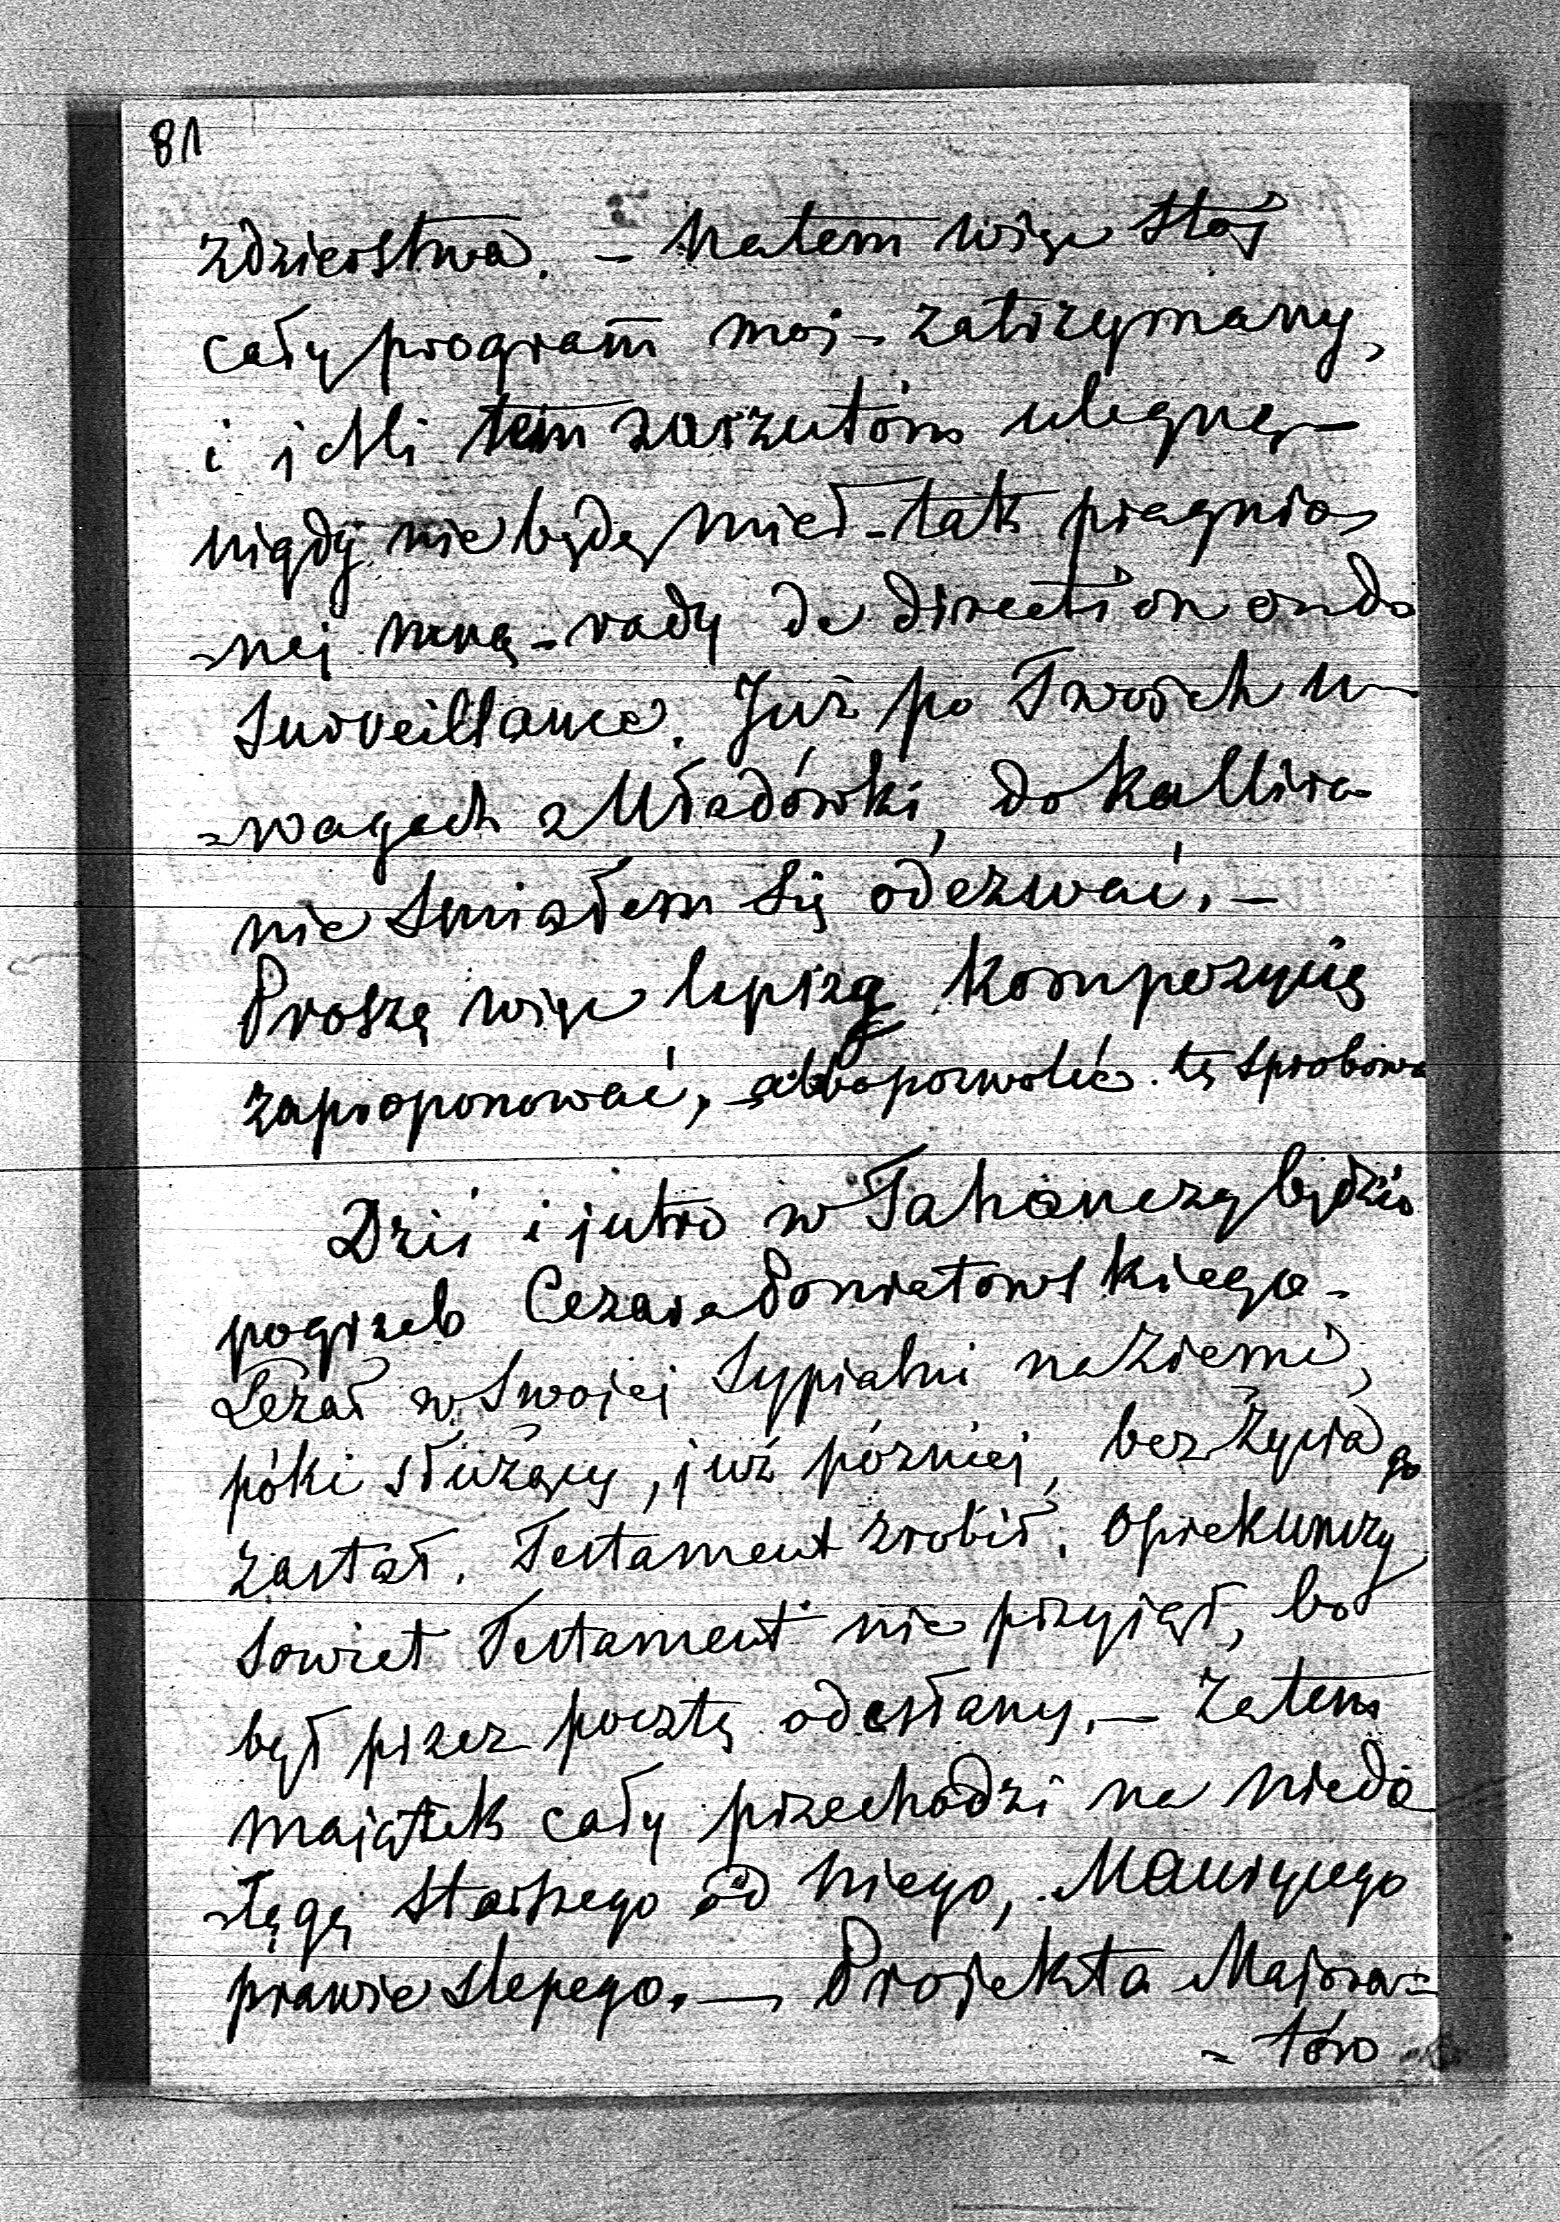 81
zdzierstwa. – Natem więc stoj
cały program moj – zatrzymany,
i jesli tem zarzutóm ulegnę –
nigdy nie będę mieł – tak pragnio
-nej mną – rady de direction ou do
Surveillance. Już po Twoich u-
-wagach z Władówki, do Kallixa
nie smiałem się odezwać. –
Proszę więc lepszą kompozycię
zaproponować, albo pozwolić tę sprobowa
Dziś i jutro w Tahanczy będzie
pogrzeb Cezara Poniatowskiego –
Leżał w swojej sypialni na ziemi,
póki służący, już pózniej, bez życia go
zastał. Testament zrobił. Opiekunczy
Sowiet Testament nie przyjął, bo
był przez pocztę odesłany. – Zatem
majątek cały przechodzi na niedo
-łęgę starszego od niego, Maurycego
prawie slepego. – Projekta Majora-
- tów